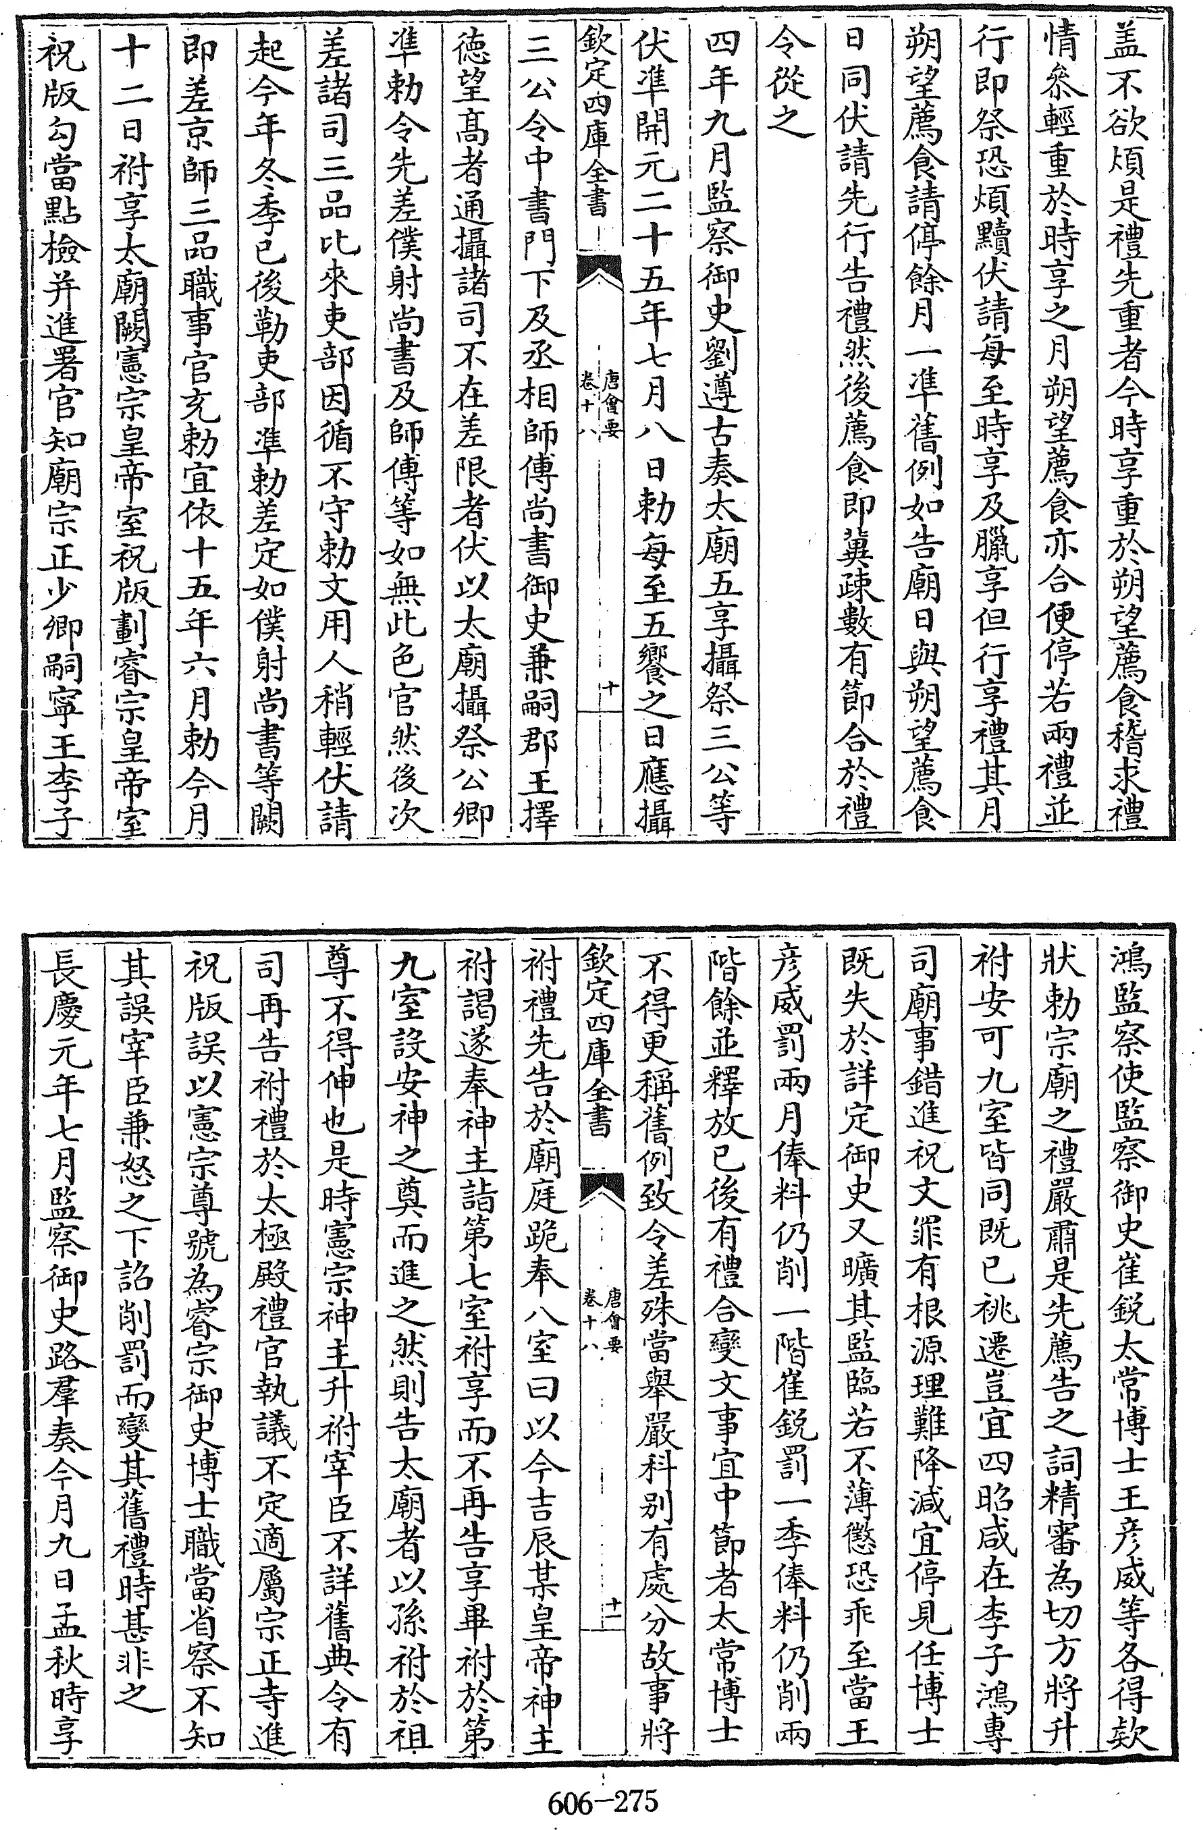 盖不欲煩是禮先重者今時享重於朔望薦食稽求禮
情叅輕重於時享之月朔望薦食亦合便停若兩禮並
行即祭恐煩黷伏請每至時享及臘享但行享禮其月
朔望薦食請停餘月一凖舊例如告廟日與朔望薦食
日同伏請先行告禮然後薦食即冀疎數有節合於禮
令從之
四年九月監察御史劉遵古奏太廟五享攝祭三公等
伏凖開元二十五年七月八日勅每至五饗之日應攝
欽定四庫全書
唐會要
卷十八
十
三公令中書門下及丞相師傅尚書御史兼嗣郡王擇
德望髙者通攝諸司不在差限者伏以太廟攝祭公卿
凖勅令先差僕射尚書及師傅等如無此色官然後次
差諸司三品比來吏部因循不守勅文用人稍輕伏請
起今年冬季已後勒吏部凖勅差定如僕射尚書等闕
即差京師三品職事官充勅宜依十五年六月勅今月
十二日祔享太廟闕憲宗皇帝室祝版劃睿宗皇帝室
祝版勾當點檢并進署官知廟宗正少卿嗣寧王李子
鴻監察使監察御史崔鋭太常博士王彦威等各得欵
狀勅宗廟之禮嚴肅是先薦告之詞精審為切方將升
祔安可九室皆同既已祧遷豈宜四昭咸在李子鴻專
司廟事錯進祝文罪有根源理難降減宜停見任博士
既失於詳定御史又曠其監臨若不薄懲恐乖至當王
彦威罰兩月俸料仍削一階崔鋭罰一季俸料仍削兩
階餘並釋放已後有禮合變文事宜中節者太常博士
不得更稱舊例致令差殊當舉嚴科别有處分故事將
欽定四庫全書
唐會要
卷十八
十一
祔禮先告於廟庭跪奉八室曰以今吉辰某皇帝神主
祔謁遂奉神主詣第七室祔享而不再告享畢祔於第
九室設安神之奠而進之然則告太廟者以孫祔於祖
尊不得伸也是時憲宗神主升祔宰臣不詳舊典令有
司再告祔禮於太極殿禮官執議不定適屬宗正寺進
祝版誤以憲宗尊號為睿宗御史博士職當省察不知
其誤宰臣兼怒之下詔削罰而變其舊禮時甚非之
長慶元年七月監察御史路羣奏今月九日孟秋時享
606-275